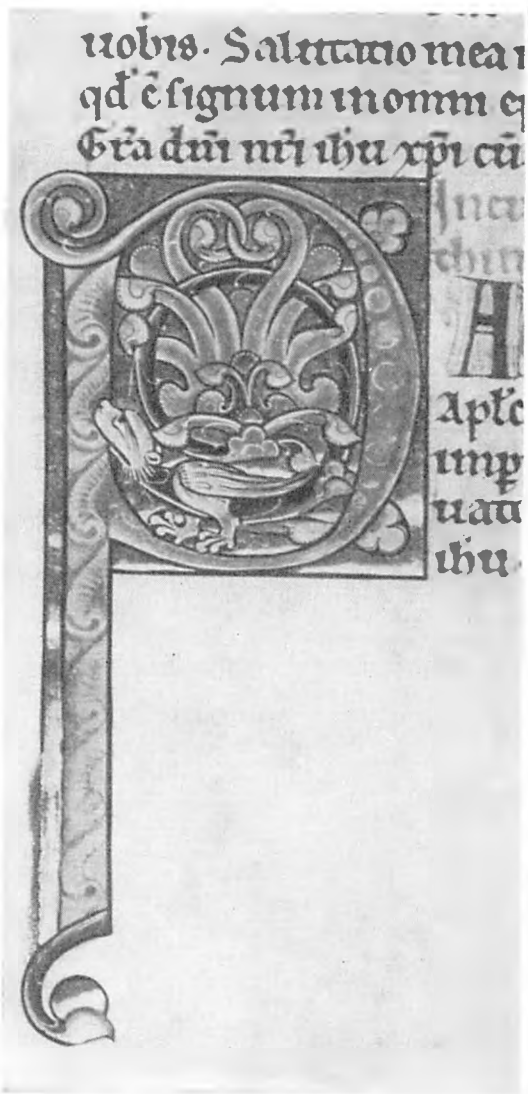 uobis. Salutatio mea
qd̄ ē signum in omni ep
Gr̄a dn̄i nr̄i ihu xp̄i cū
P
A
Apl̄o
imp
uato
ihu.